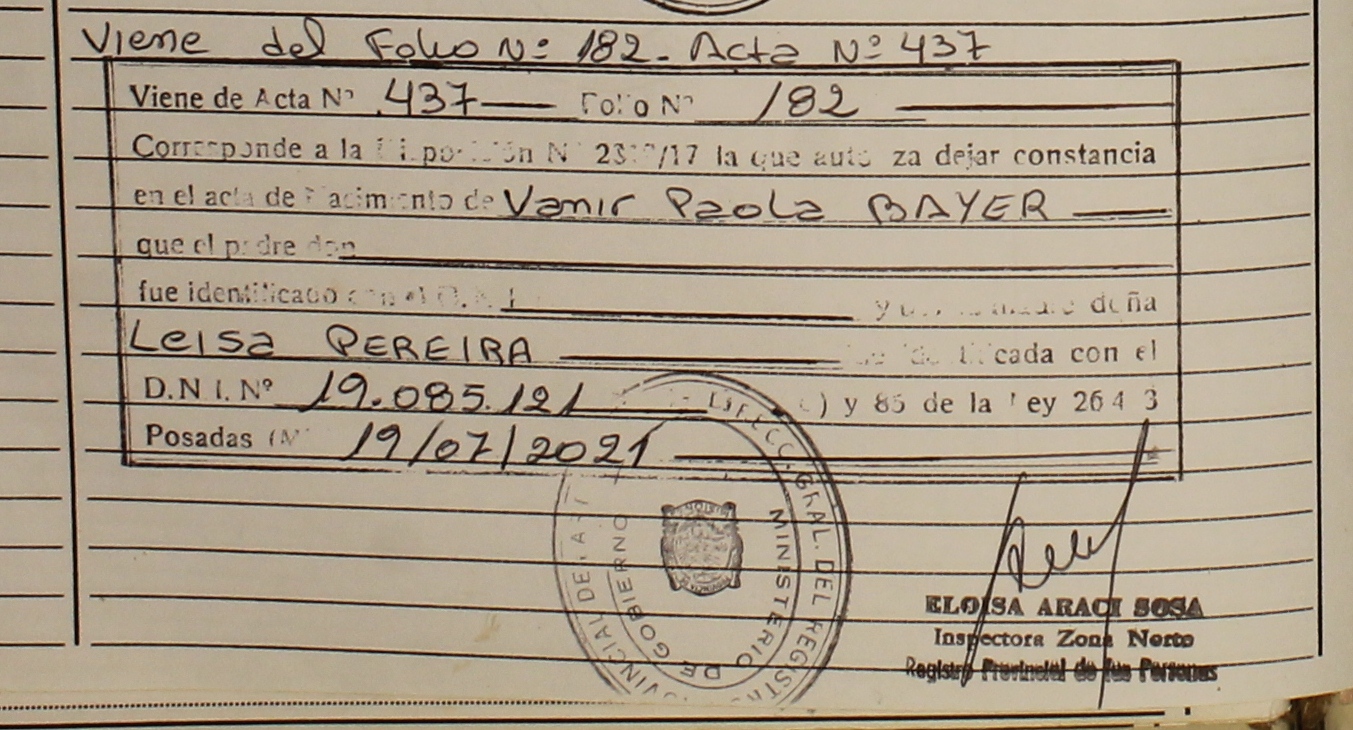 Viene del Folio Nº 182. Acta Nº 437
Viene de Acta Nº 437 Folio Nº 182
Corresponde a la Nº /17 la que dejar constancia
en el acta de Nacimiento de Vanir Paola BAYER
que el padre don
fue identificado con el D.N.I. doña
Leisa PEREIRA con el
D.N.I. Nº 19.085.121 y 85 de la Ley
Posadas 19/07/2021
DIRECC. GRAL. DEL REGISTRO PROVINCIAL DE LAS
MINISTERIO DE GOBIERNO
ELOISA ARACI SOSA
Inspectora Zona Norte
Registro Provincial de las Personas